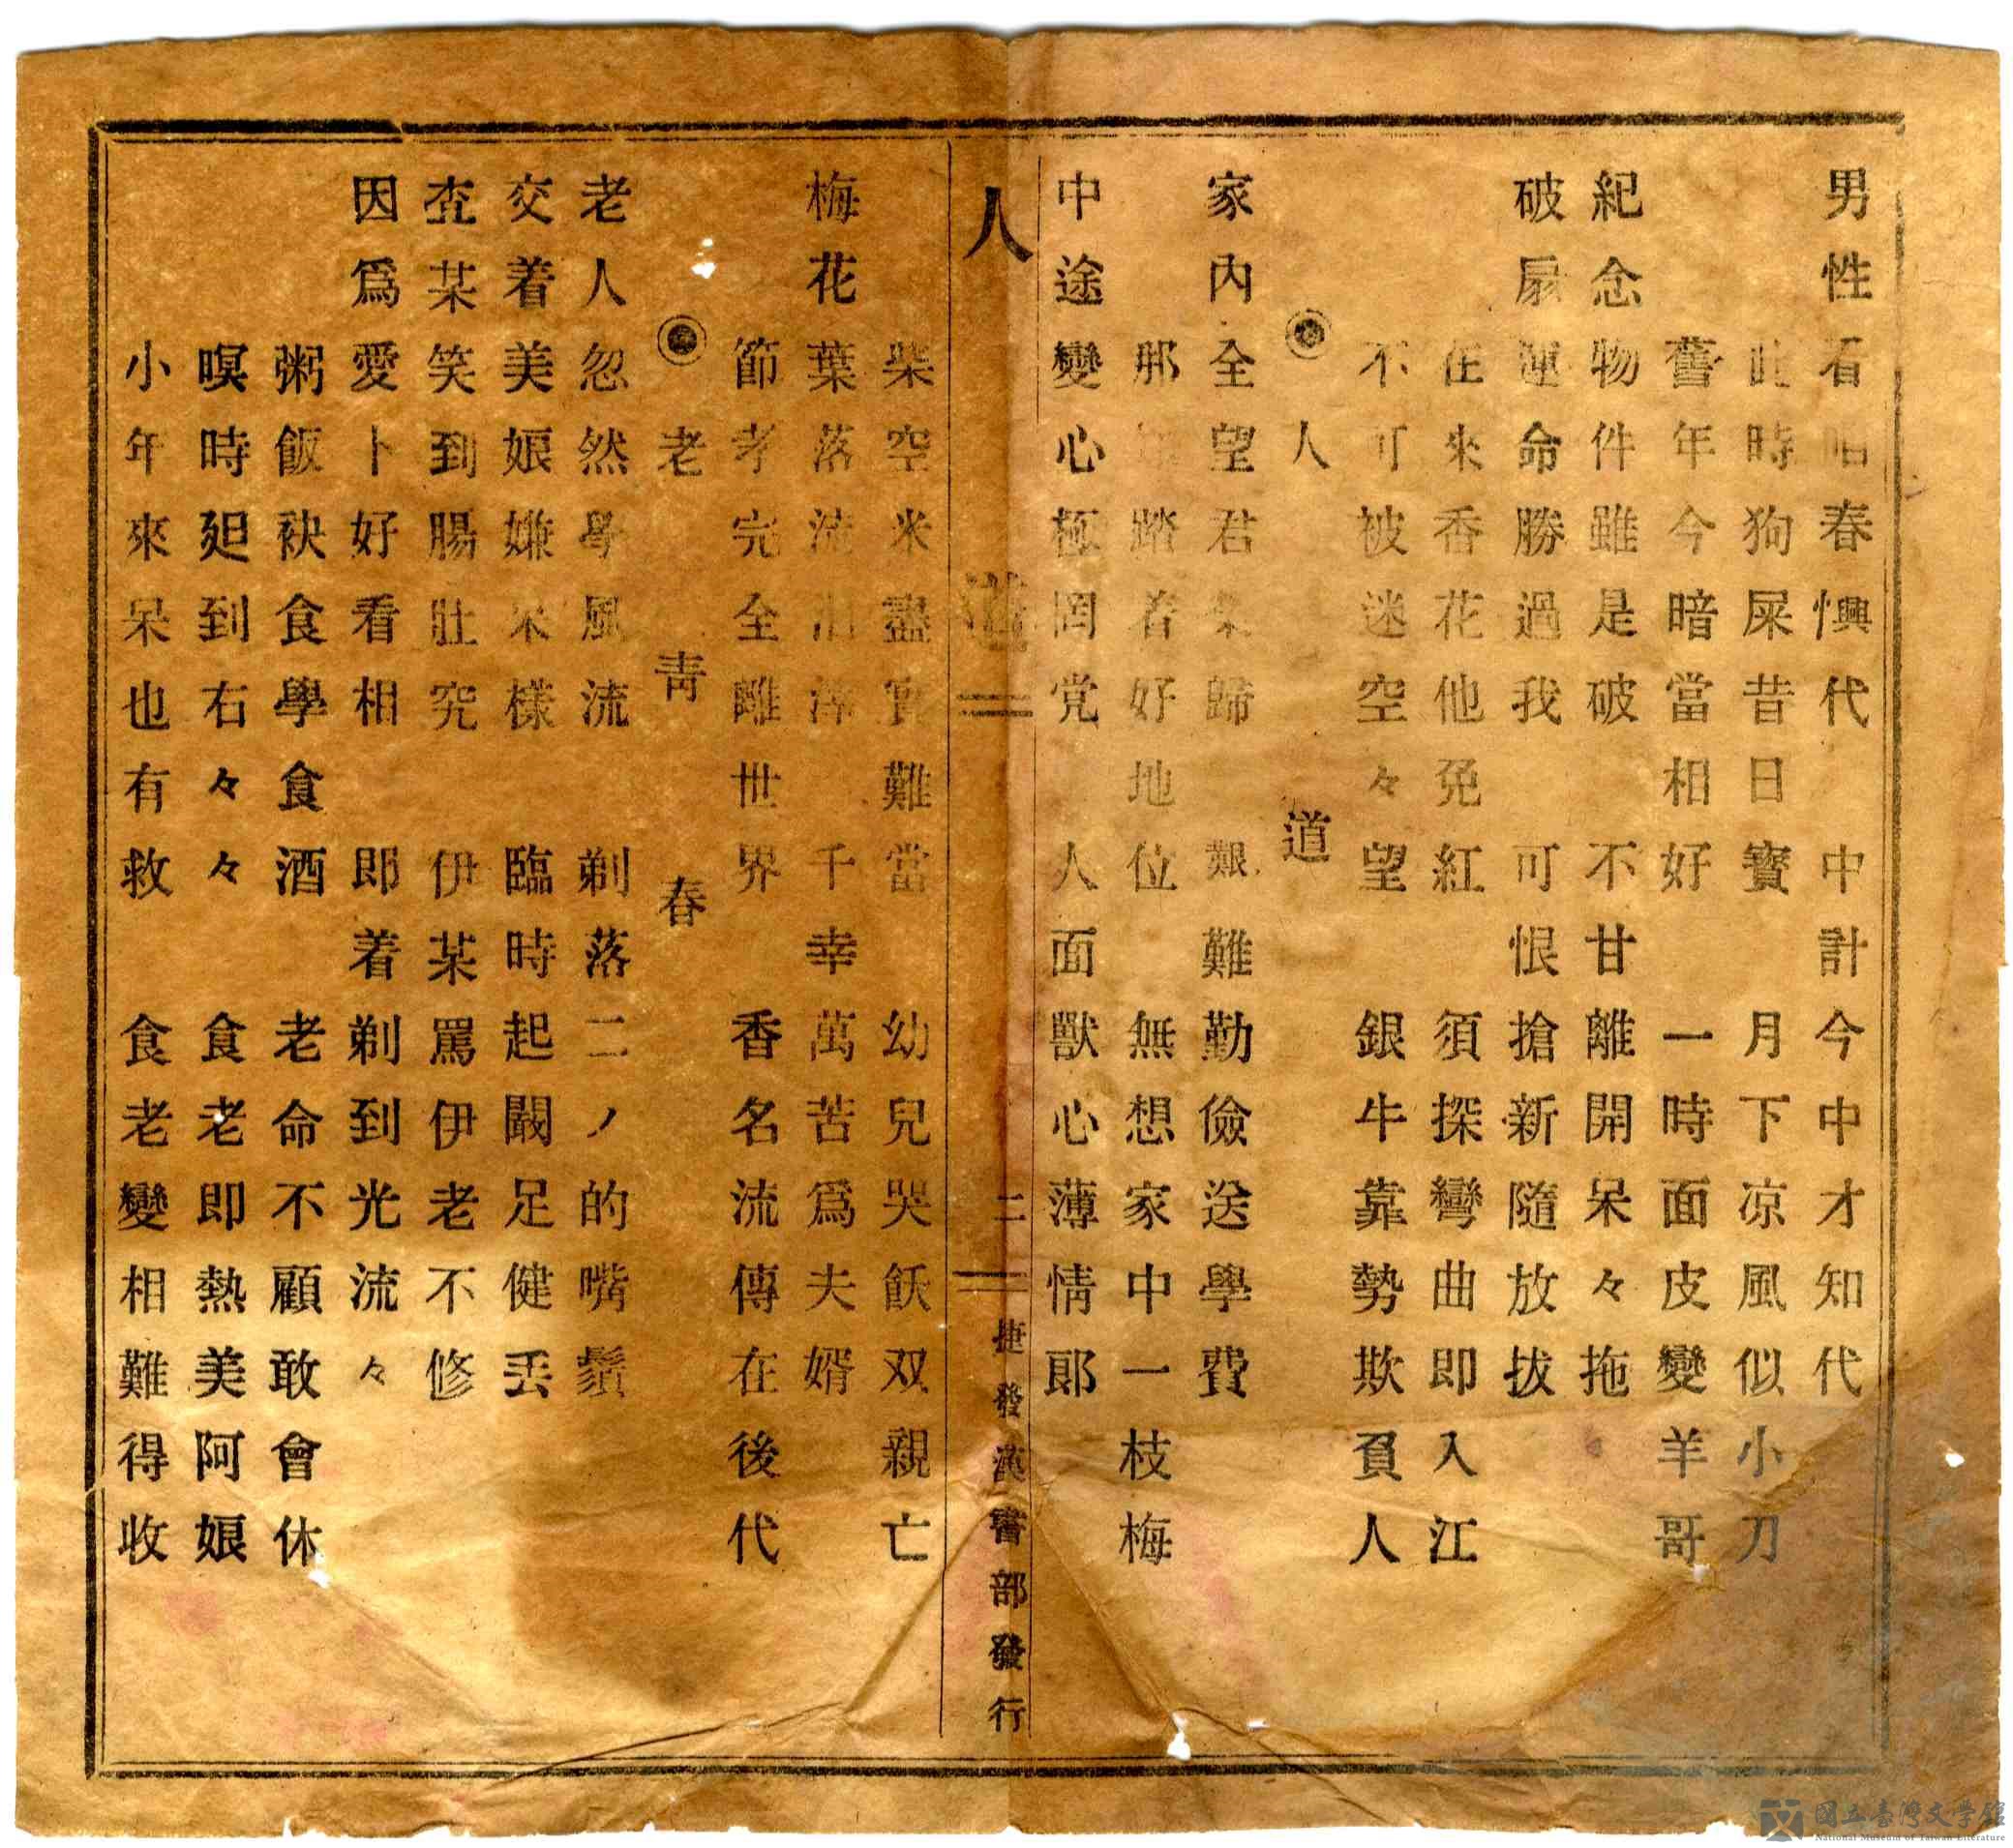 男性看 春懊代 中計今中才知代
此時狗屎昔日寶 月下凉風似小刀
舊年今暗當相好 一時面皮變羊哥
紀念物件雖是破 不甘離開呆々拖
破扇運命勝過我 可恨搶新隨放拔
在來香花他免紅 須探彎曲即入江
不可被迷空々望 銀牛靠勢欺負人
◉人道
家內全望君 歸 艱難勤儉送學費
那 踏着好地位 無想家中一枝梅
中途變心極罔党 人面獸心薄情郎
人道 二 捷發漢書部發行
柴空米盡實難當 幼兒哭飫双親亡
梅花葉落流 千幸萬苦爲夫婿
節孝完全離世界 香名流傳在後代
◉老青春
老人忽然學風流 剃落二ノ的嘴鬚
交着美娘嫌呆樣 臨時起鬫足健丟
查某笑到腸肚究 伊某罵伊老不修
因爲愛卜好看相 即着剃到光流々
粥飯袂食學食酒 老命不顧敢會休
暝時𢌞到右々々 食老即熱美阿娘
小年來呆也有救 食老變相難得收
國立臺灣文學館
National Museum of Taiwan Literature